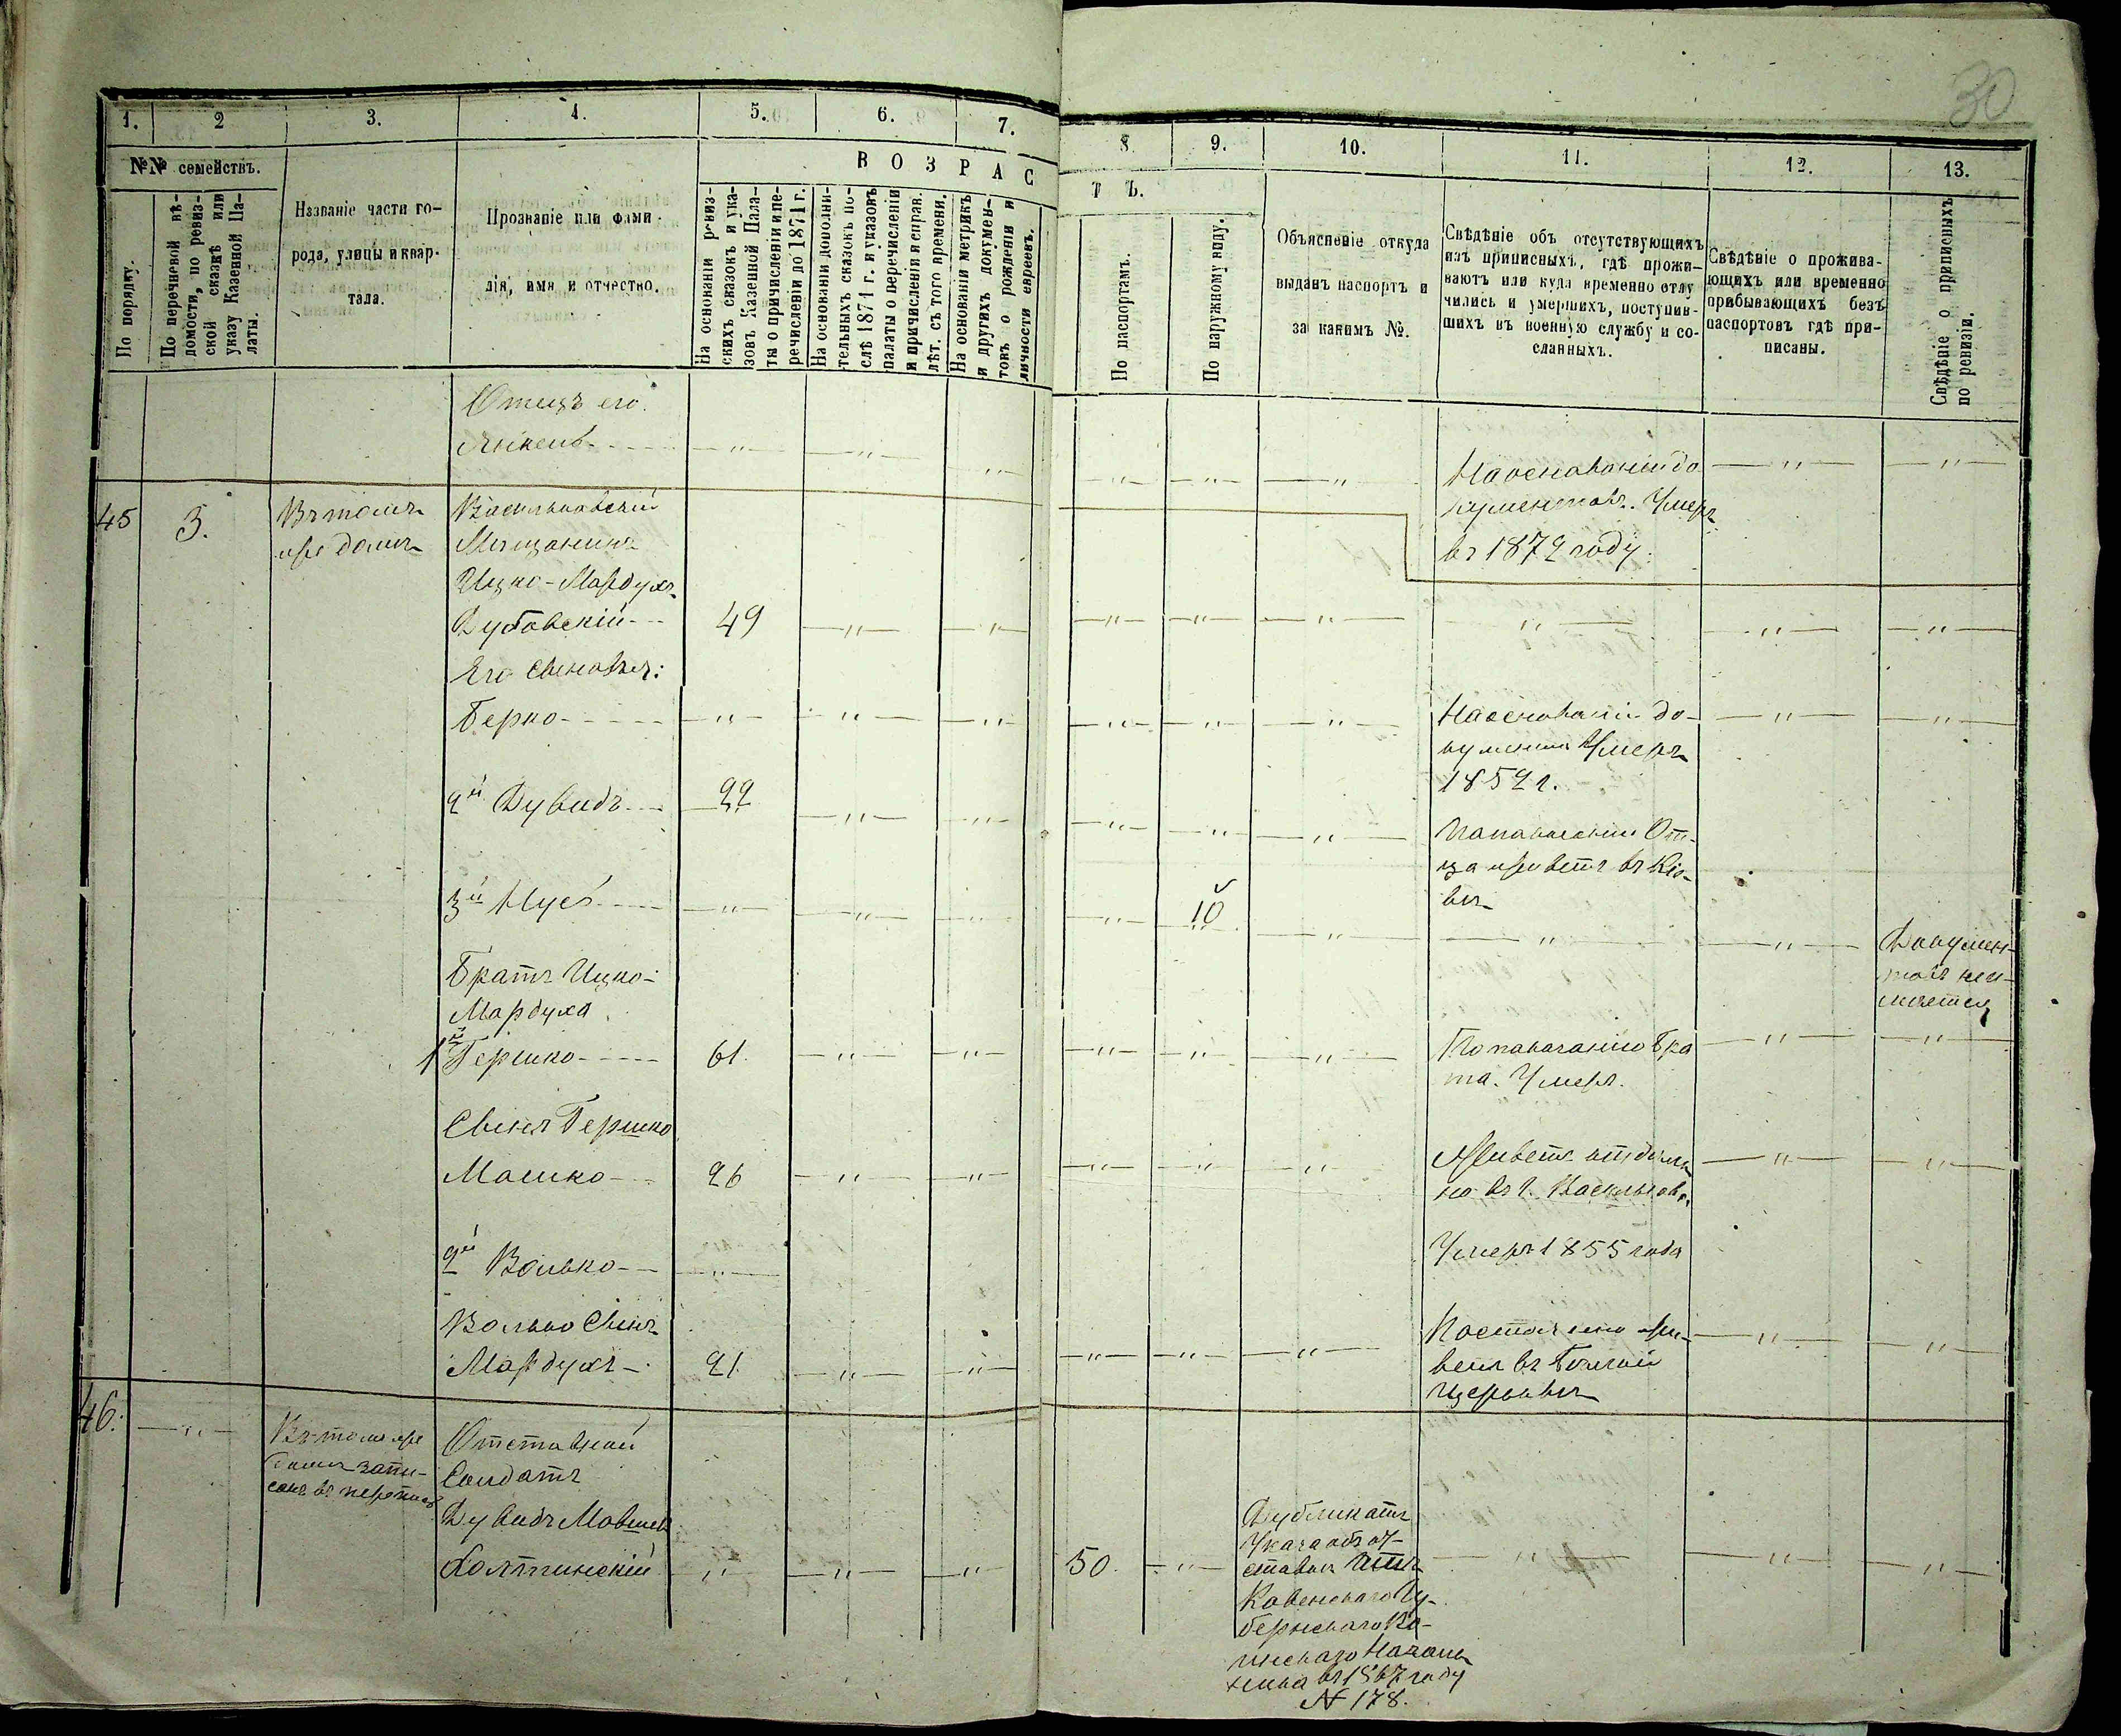 30
1. 2 3. 4. 5. 6. 7. 8 9. 10. 11. 12. 13.
№№ семействъ.
По порядку.
По перечневой вѣ-
домости, по ревиз-
ской сказкѣ или
указу Казенной Па-
латы.
Названіе части го-
рода, улицы и квар-
тала.
Прозваніе или фами-
лія, имя и отчество.
ВОЗРАС
ТЪ.
На основаніи ревиз-
скихъ сказокъ и ука-
зовъ Казенной Пала-
ты о причисленіи и пе-
речисленіи до 1871 г.
На основаніи дополни-
тельныхъ сказокъ по-
слѣ 1871 г. и указовъ
палаты о перечисленіи
и причисленіи и справ.
лѣт. съ того времени.
На основаніи метрикъ
и другихъ докумен-
товъ о рожденіи и
личности евреевъ.
По паспортамъ.
По наружному виду.
Объясненіе откуда
выданъ паспортъ и
за какимъ №.
Свѣдѣніе объ отсутствующихъ
изъ приписныхъ, гдѣ прожи-
ваютъ или куда временно отлу
чились и умершихъ, поступив-
шихъ въ военную службу и со-
сланныхъ.
Свѣдѣніе о прожива-
ющихъ или временно
прибывающихъ безъ
паспортовъ гдѣ при-
писаны.
Свѣдѣніе о приписныхъ
по ревизіи.
Отецъ его
Янкель - - - " " " " " "
На основаніи до
кументовъ. Умеръ
въ 1872 году.
" "
45 3.
Въ томъ
же домѣ
Васильковскій
Мѣщанинъ
Ицко-Мордухъ
Дубовскій - - 49 " " " " " " " "
Его сыновья:
Берко - - - - " " " " " "
На основаніи до-
кумента Умеръ
1852 г.
" "
2й Дувидъ - - 22 " " " " "
По показанію От-
ца живетъ въ Кіе-
вѣ
3й Нусъ - - - " " " " 10 " " "
Докумен-
товъ неи-
мѣется
Братъ Ицко-
Мордуха
1й Гершко - - - - 61. " " " " "
По показанію Бра
та. Умеръ.
" "
Сынъ Гершко
Мошко - - 26 " " " " "
Живетъ отдѣль
но въ г. Васильковѣ.
" "
2й Волько - - "
Умеръ 1855 года
Волько Сынъ
Мордухъ - 21 " " " " "
Постоянно жи-
ветъ въ Бѣлой
Церквѣ
" "
46. "
Въ томъ же
домѣ запи-
санъ въ перепись
Отставной
Солдатъ
Дувидъ Мовшев
Холтинскій " " " 50. "
Дубликатъ
Указа объ от-
ставкѣ
Ковенскаго Гу-
бернскаго Во-
инскаго Началь
ника въ 1867 году
N 178.
" " "